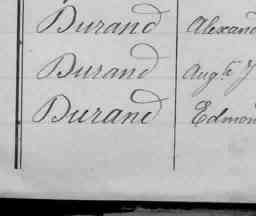 Durand Alexand
Durand Aug.te J
Durand Edmon